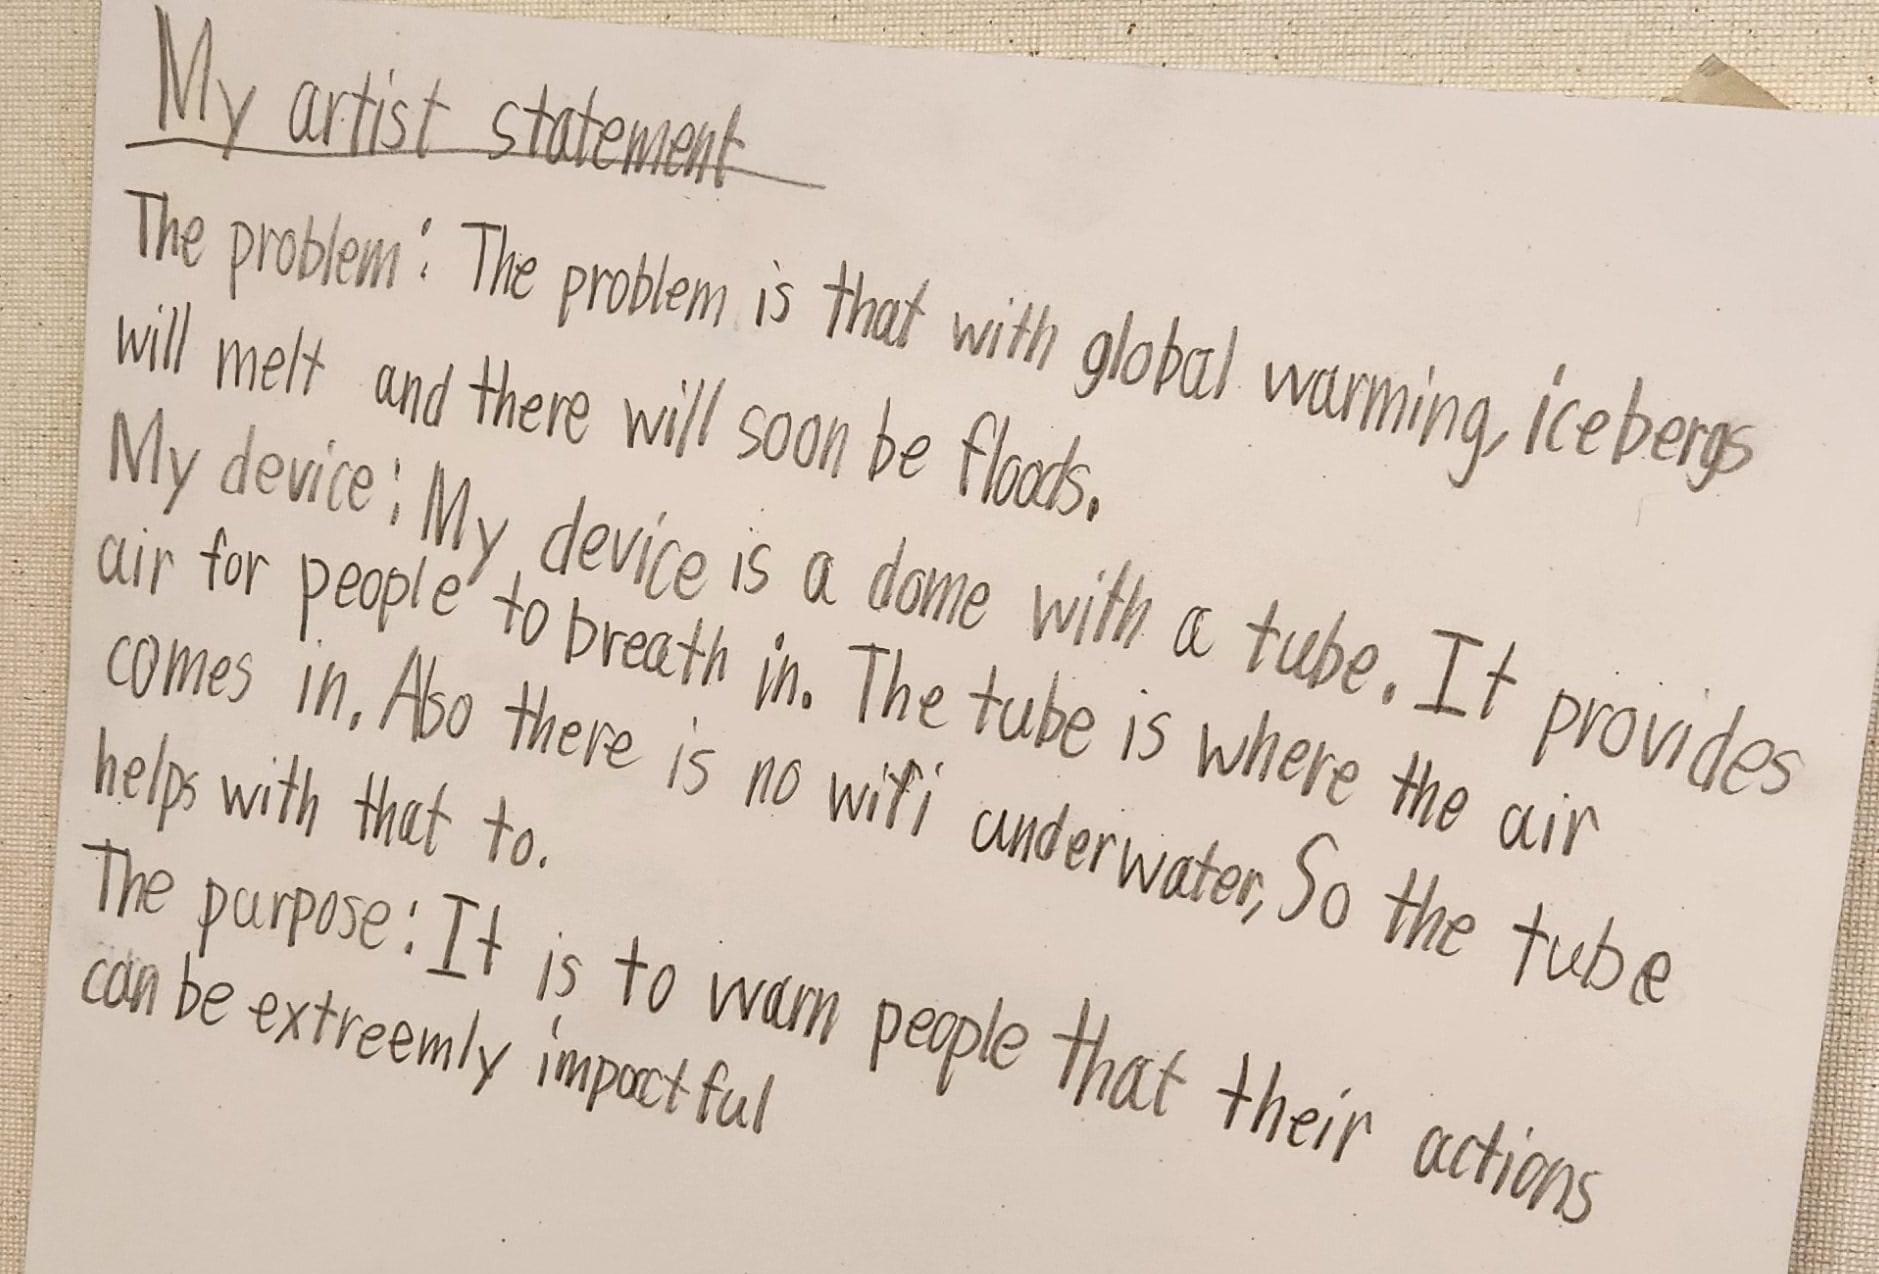 My artist statement
The problem: The problem is that with global warming, icebergs
will melt and there will soon be floods.
My device: My device is a dome with a tube. It provides
air for people to breath in. The tube is where the air
comes in. Also there is no wifi underwater, So the tube
helps with that to.
The purpose: It is to warn people that their actions
can be extreemly impactful